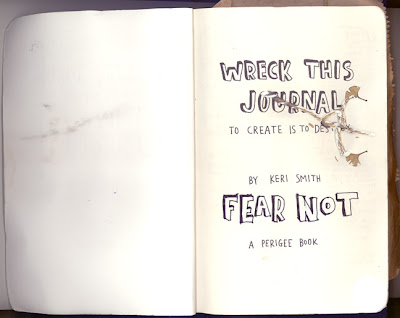 WRECK THIS
JOURNAL
TO CREATE IS TO
BY KERI SMITH
FEAR NOT
A PERIGEE BOOK